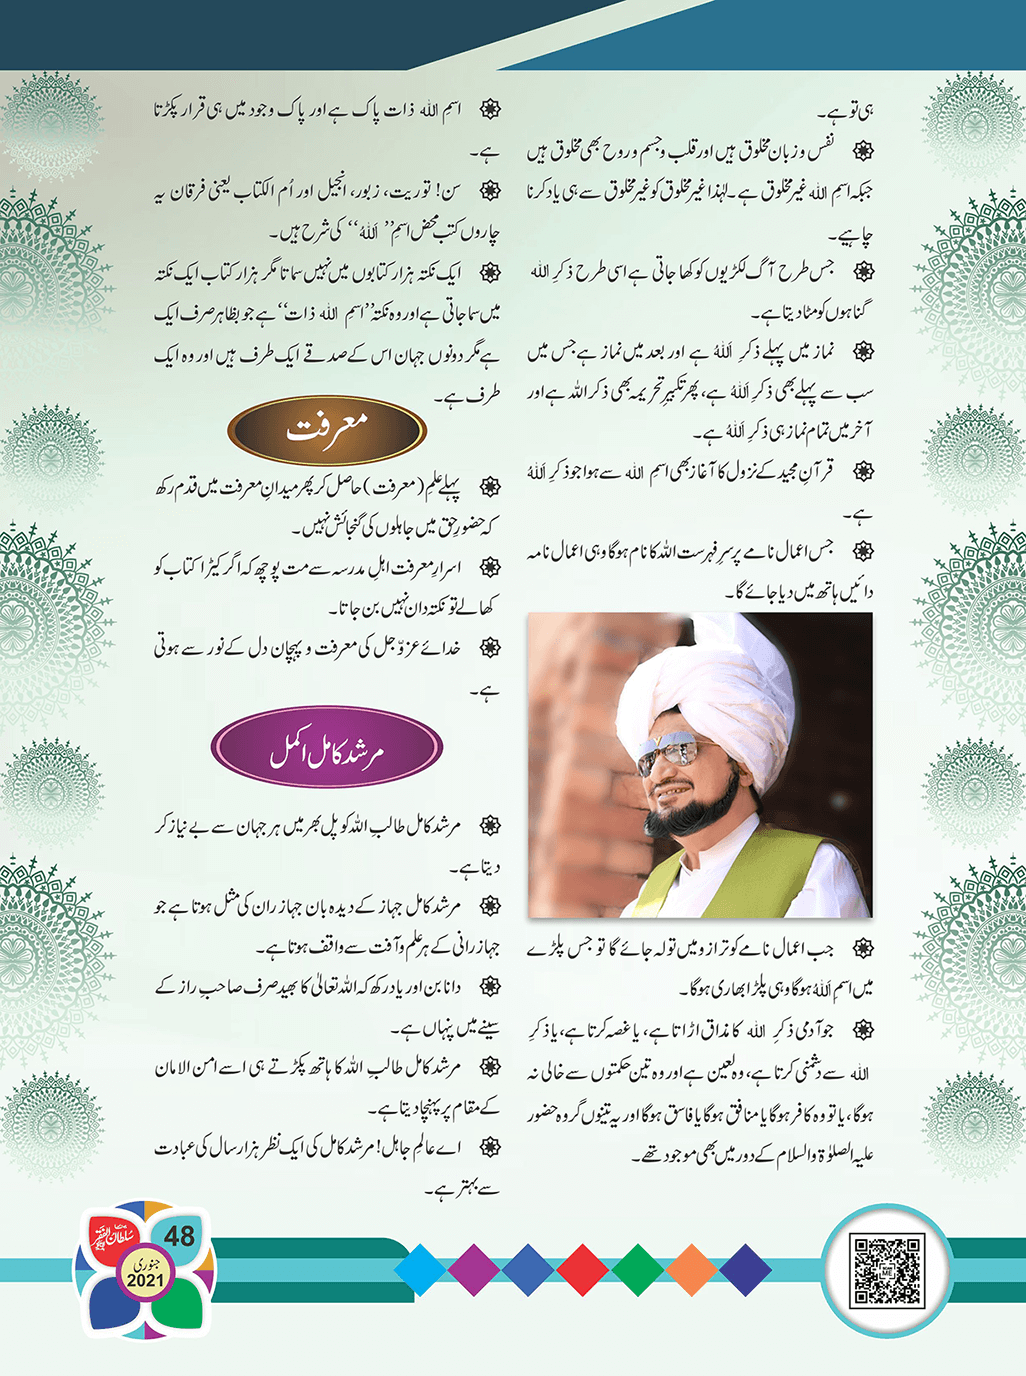 ہی تو ہے۔
نفس و زبان مخلوق ہیں اور قلب و جسم و روح بھی مخلوق ہیں
جبکہ اسمِ اللہ غیر مخلوق ہے۔ لہٰذا غیر مخلوق کو غیر مخلوق سے ہی یاد کرنا
چاہیے۔
جس طرح آگ لکڑیوں کو کھا جاتی ہے اسی طرح ذکرِ اللہ
گناہوں کو مٹا دیتا ہے۔
نماز میں پہلے ذکرِ اَللہُ ہے اور بعد میں نماز ہے جس میں
سب سے پہلے بھی ذکرِ اَللہُ ہے، پھر تکبیرِ تحریمہ بھی ذکر اللہ ہے اور
آخر میں تمام نماز ہی ذکرِ اَللہُ ہے۔
قرآنِ مجید کے نزول کا آغاز بھی اسمِ اللہ سے ہوا جو ذکرِ اَللہُ
ہے۔
جس اعمال نامے پر سرِ فہرست اللہ کا نام ہوگا وہی اعمال نامہ
دائیں ہاتھ میں دیا جائے گا۔
جب اعمال نامے کو ترازو میں تولہ جائے گا تو جس پلڑے
میں اسمِ اَللہُ ہوگا وہی پلڑا بھاری ہوگا۔
جو آدمی ذکرِ اللہ کا مذاق اڑاتا ہے، یا غصہ کرتا ہے، یا ذکرِ
اللہ سے دشمنی کرتا ہے، وہ لعین ہے اور وہ تین حکمتوں سے خالی نہ
ہوگا، یا تو وہ کافر ہوگا یا منافق ہوگا یا فاسق ہوگا اور یہ تینوں گروہ حضور
علیہ الصلوٰۃ والسلام کے دور میں بھی موجود تھے۔
اسمِ اللہ ذات پاک ہے اور پاک وجود میں ہی قرار پکڑتا
ہے۔
سن! توریت، زبور، انجیل اور اُم الکتاب یعنی فرقان یہ
چاروں کتب محض اسمِ ”اَللہُ“ کی شرح ہیں۔
ایک نکتہ ہزار کتابوں میں نہیں سماتا مگر ہزار کتاب ایک نکتہ
میں سما جاتی ہے اور وہ نکتہ ”اسمِ اللہ ذات“ ہے جو بظاہر صرف ایک
ہے مگر دونوں جہان اس کے صدقے ایک طرف ہیں اور وہ ایک
طرف ہے۔
معرفت
پہلے علمِ (معرفت) حاصل کر پھر میدانِ معرفت میں قدم رکھ
کہ حضورِ حق میں جاہلوں کی گنجائش نہیں۔
اسرارِ معرفت اہلِ مدرسہ سے مت پوچھ کہ اگر کیڑا کتاب کو
کھا لے تو نکتہ دان نہیں بن جاتا۔
خدائے عزّوجل کی معرفت و پہچان دل کے نور سے ہوتی
ہے۔
مرشد کامل اکمل
مرشد کامل طالبِ اللہ کو پل بھر میں ہر جہان سے بے نیاز کر
دیتا ہے۔
مرشد کامل جہاز کے دیدہ بان جہاز ران کی مثل ہوتا ہے جو
جہاز رانی کے ہر علم و آفت سے واقف ہوتا ہے۔
دانا بن اور یاد رکھ کہ اللہ تعالیٰ کا بھید صرف صاحبِ راز کے
سینے میں پنہاں ہے۔
مرشد کامل طالب اللہ کا ہاتھ پکڑتے ہی اسے امن الامان
کے مقام پر پہنچا دیتا ہے۔
اے عالمِ جاہل! مرشد کامل کی ایک نظر ہزار سال کی عبادت
سے بہتر ہے۔
سلطان الفقر
48
جنوری
2021